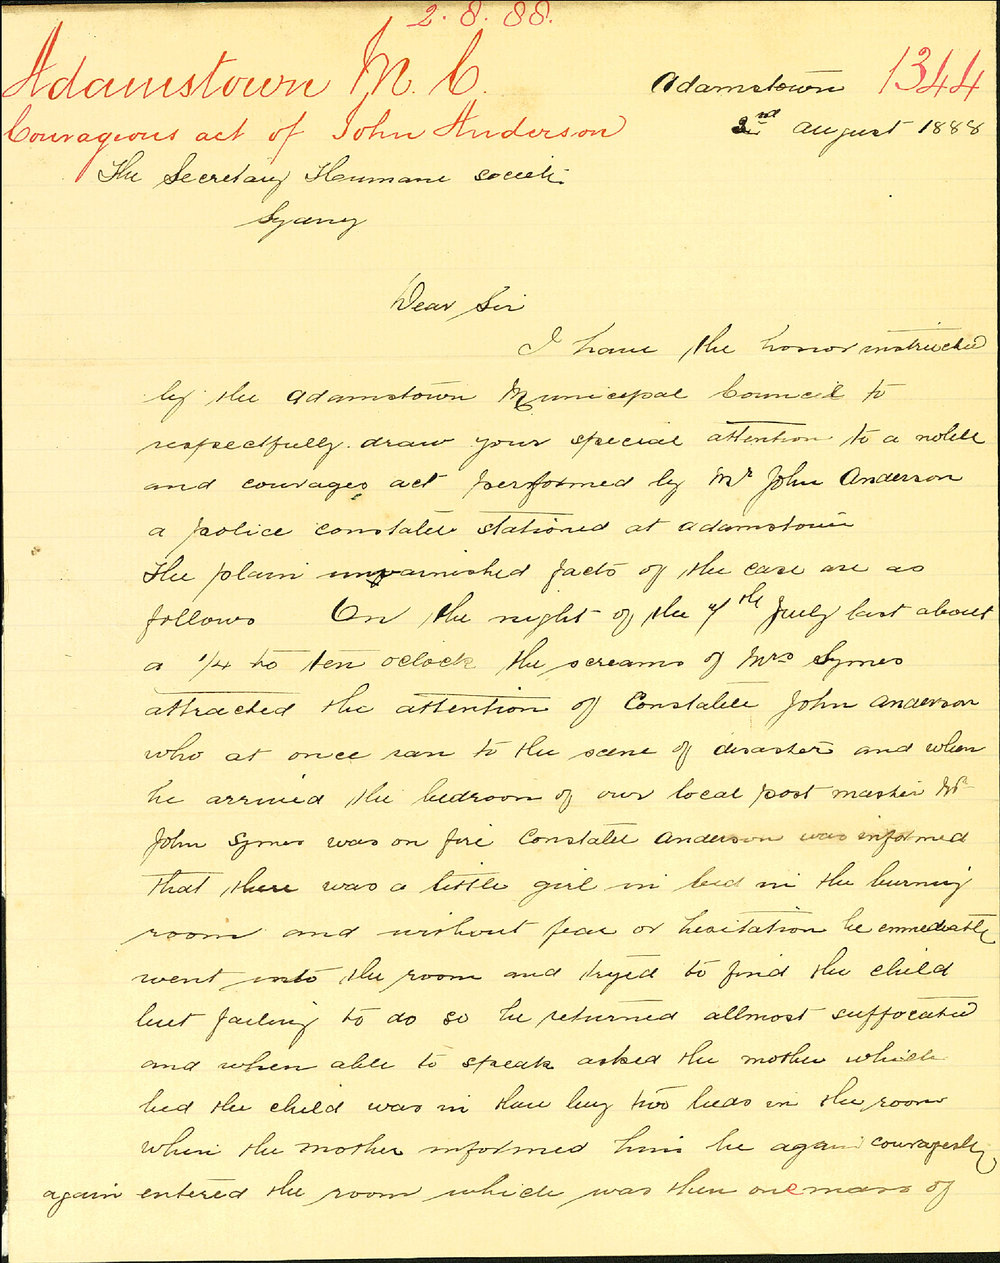 2.8.88.
Adamstown M.C.
Adamstown 1344
2nd august 1888
Courageous act of John Anderson
The Secretary Humane societi
Sydney
Dear Sir
I have the honor instructed
by the adamstown Municipal Council to
respectfully draw your special attention to a noble
and courages act performed by Mr John Anderson
a police constable stationed at adamstown
The plain unvarnished facts of the case are as
follows On the night of the 7th July last about
a 1/4 to ten oclock the screams of Mrs Symes
attracted the attention of Constable John anderson
who at once ran to the scene of disaster and when
he arrived the bedroom of our local post master Mr
John Symes was on fire Constable anderson was informed
that there was a little girl in bed in the burning
room and without fear or hesitation he emmediatly
went into the room and tryed to find the child
but failing to do so he returned allmost suffocated
and when able to speak asked the mother which
bed the child was in thare being two beds in the room
when the mother informed him he again couragesly
again entered the room which was then one mass of